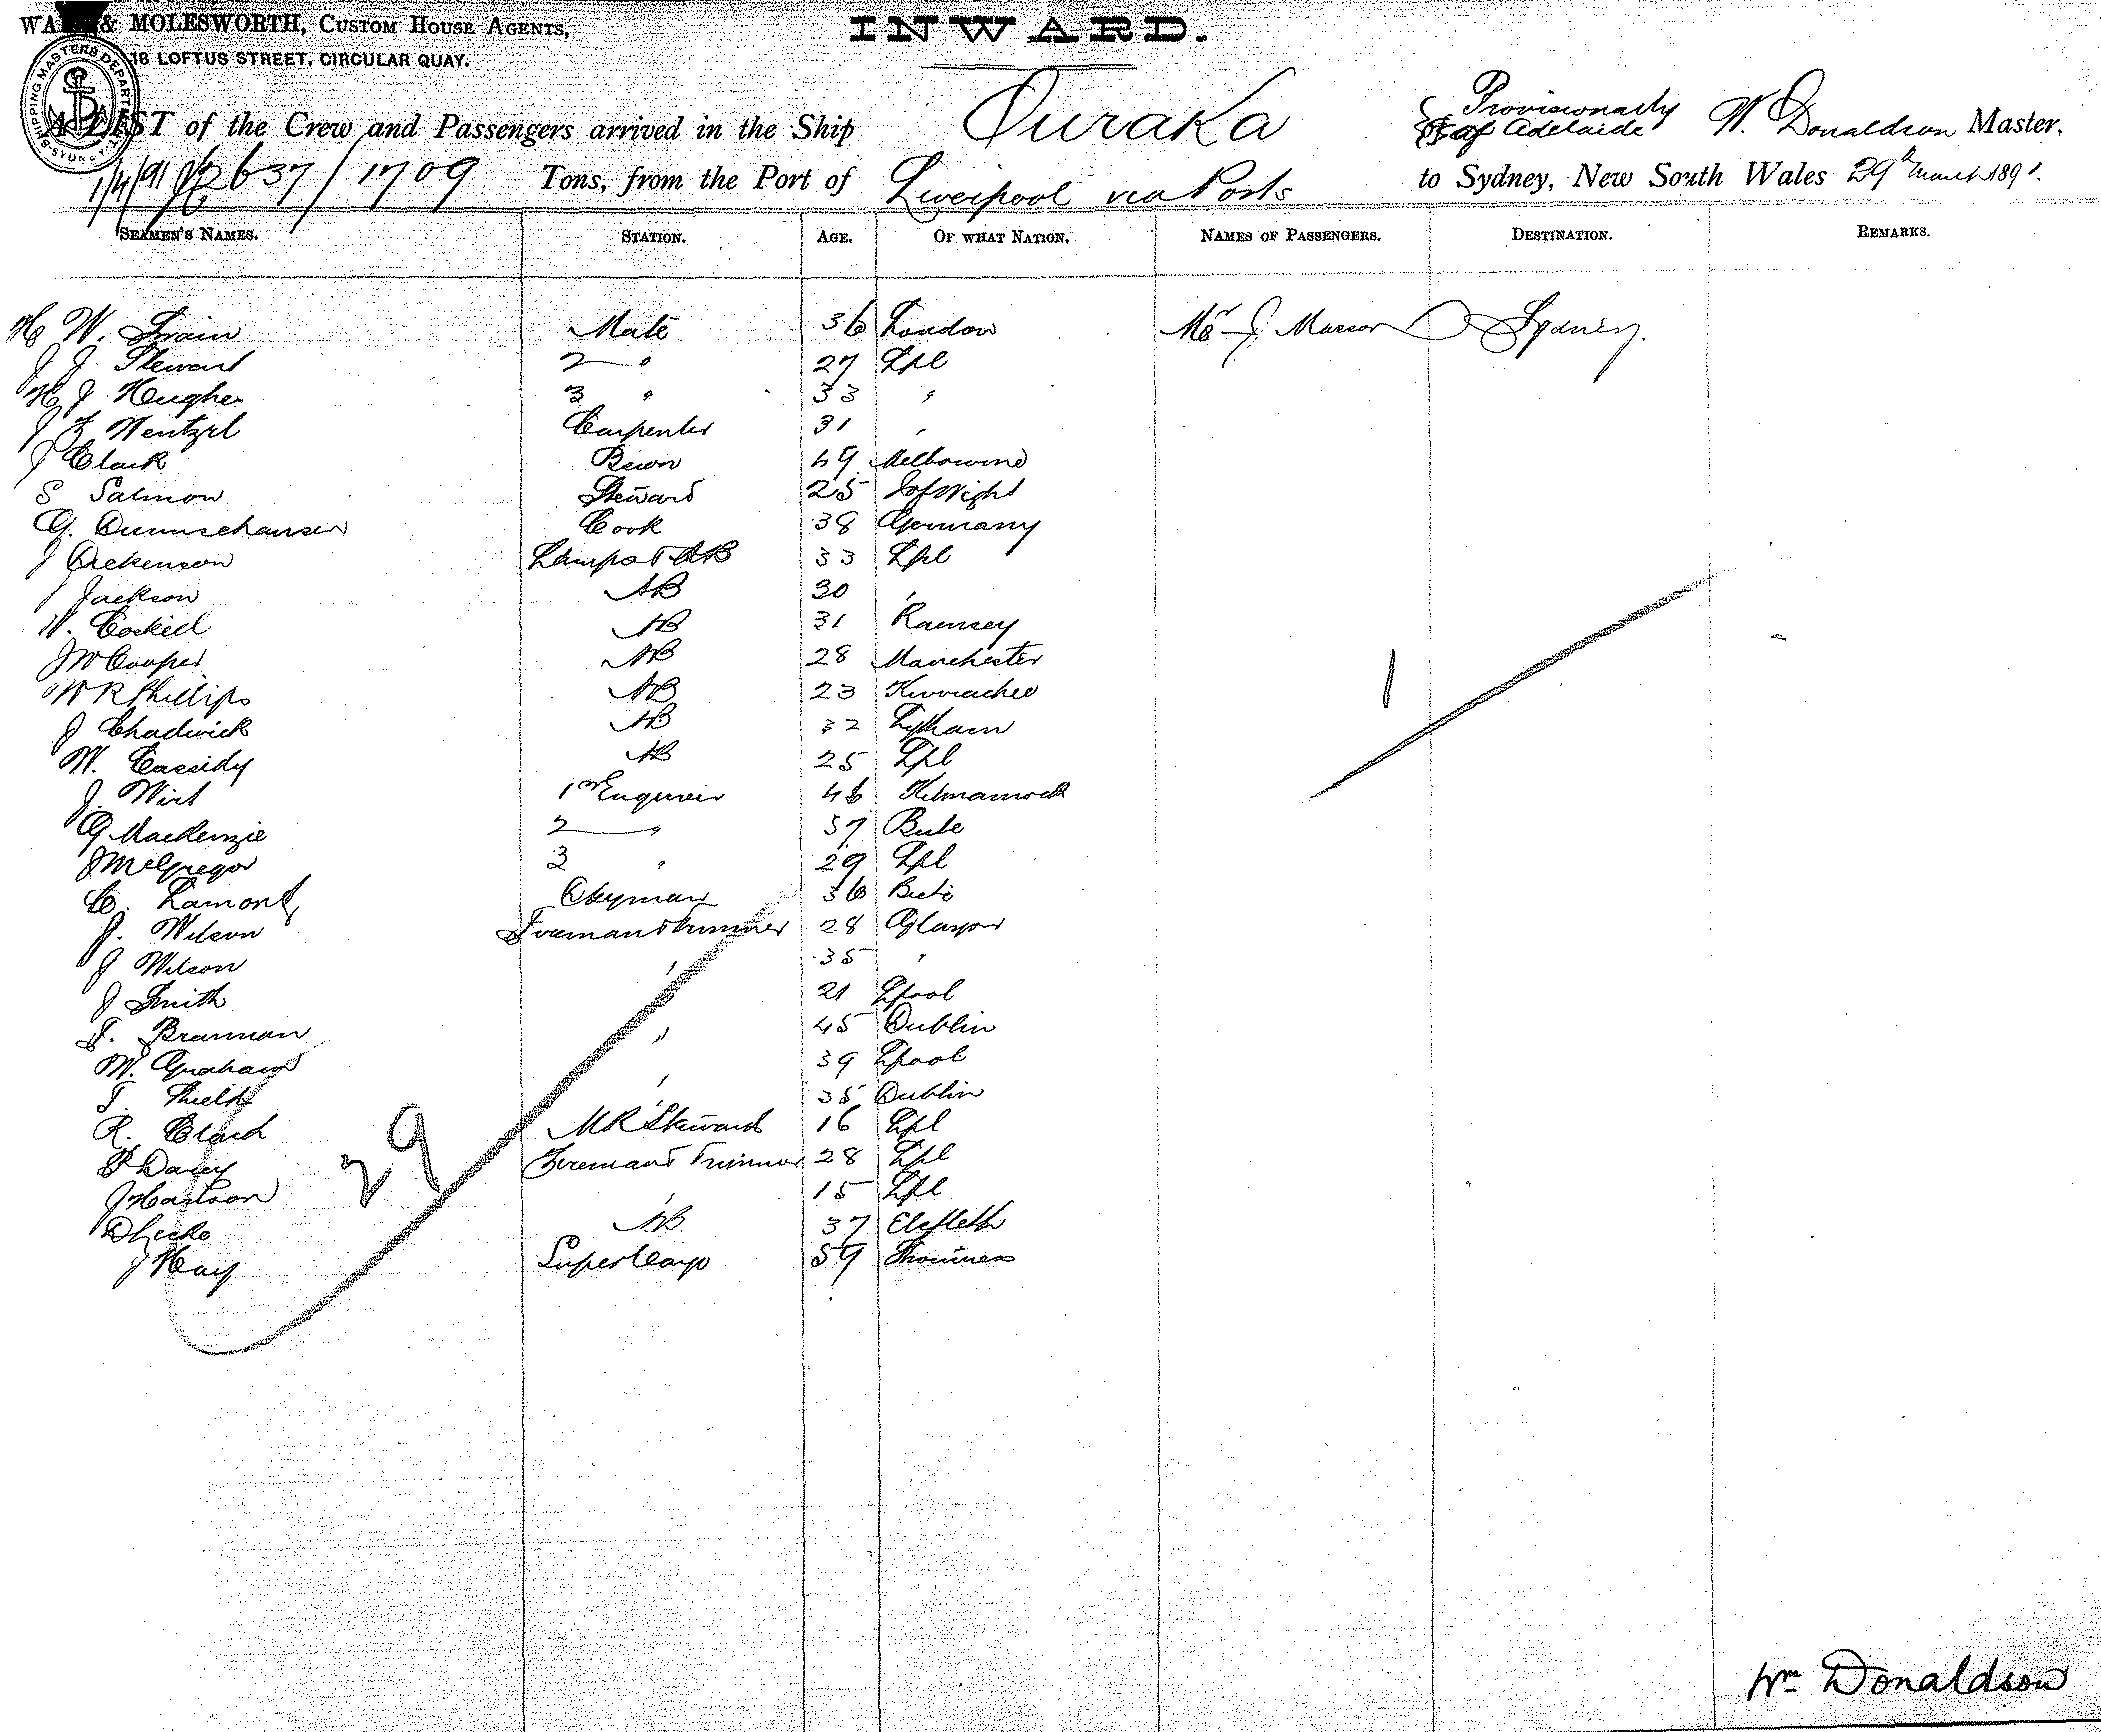 & MOLESWORTH, CUSTOM HOUSE AGENTS,
18 LOFTUS STREET, CIRCULAR QUAY.
INWARD.
SHIPPING MASTERS DEPARTMENT SYDNEY
A LIST of the Crew and Passengers arrived in the Ship Ouraka Provisionally of Adelaide W. Donaldson Master.
1/4/91 2637/1709 Tons, from the Port of Liverpool via Ports to Sydney, New South Wales 29th March 1891.
SEAMEN'S NAMES. STATION. AGE. OF WHAT NATION. NAMES OF PASSENGERS. DESTINATION. REMARKS.
H W. Mate 36 London Mr J Sydney.
J J. Stewart 2 " 27 Lpl
H J Hughes 3 " 33 "
J Z Wentzel Carpenter 31 "
J Clark Bswn 49 Melbourne
S Salmon Steward 25 I of Wight
G. Cook 38 Germany
J Dickenson Lamps & AB 33 Lpl
J Jackson AB 30 "
W. Corkill AB 31 Ramsey
J W Cooper AB 28 Manchester
W R Phillips AB 23 Kurrachee
J Chadwick AB 32 Lytham
W. Cassidy AB 25 Lpl
J. Wirt 1st Engineer 46 Kilmarnock
G Mackenzie 2 " 37 Bute
J McGregor 3 " 29 Lpl
C. Lamont Dkyman 36 Bute
J. Wilson Fireman & Trimmer 28 Glasgow
J Wilson " 35 "
J Smith 21 Lpool
T. Brannan " 45 Dublin
M. Graham 39 Lpool
T. Shields " 35 Dublin
R. Clark M R Steward 16 Lpl
P Davey Fireman & Trimmer 28 Lpl
J " 15 Lpl
D AB 37 Elsfleth
J Hay Super Cargo 59
1
29
Wm Donaldson